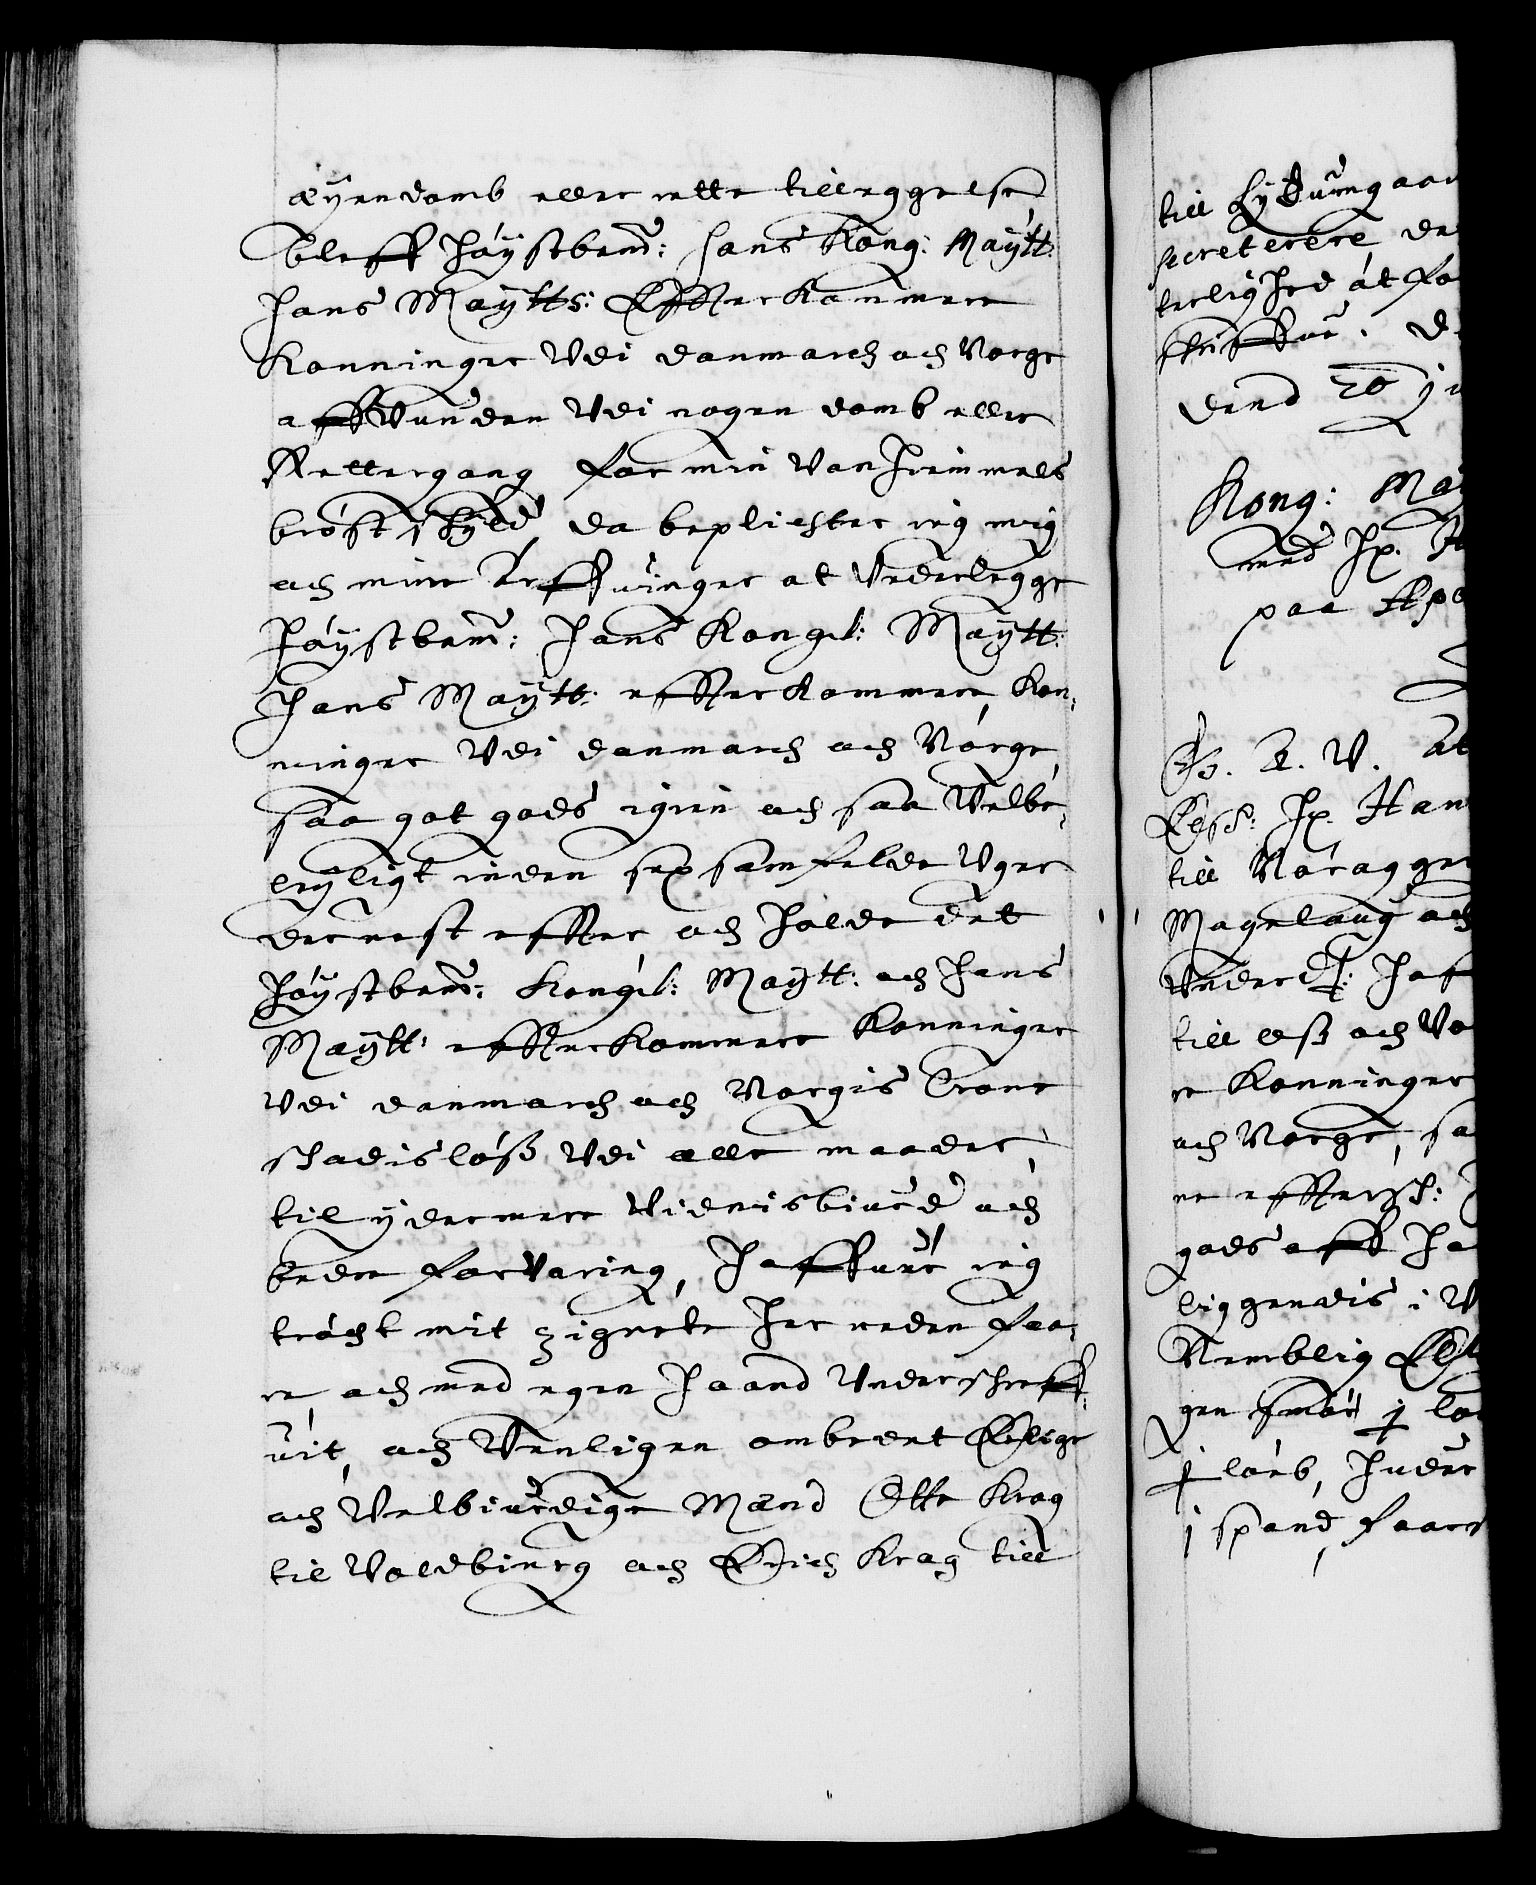 æyendomb eller rette tilleggelse
bleff höystbem: hans Kong: Maytt:
hans Maytts: Effterkammere
Konninger Vdi danmarch och Norge
affVunden Vdi nogen domb eller
Rettergang for min Vanhiemmels
bröst skyld, da bepligter ieg mig
och mine Arffuinger at Vederlegge
höystbem: hans Kongel: Maytt:
hans Maytt: effterkommere Kon,
ninger Vdi danmarch och Norge
saa got gods igien och saa Velbe,
leyligt inden sex samfelde Vger
dernest effter och holde det
höystbem: Kongel: Maytt: och hans
Maytt: effterkommere Konninger
Vdi danmarch och Norgis Crone
schadislöß Vdi alle maader,
til ydermere Vidnisbiurd och
bedre forVaring, haffuer ieg
tröcht mit Zignete her neden faa,,
re och med egen haand Vnderschreff,,
uit, och Venligen ombedet Erlige
och Velbiurdige Mænd Otte Krag
til Voldbiurg och Erich Krag till
till Lydum gaar
secreterere de
terlighed at fo
skriffue. D
dend 20 j
Kong: May
med Hr. H
paa Apo
G. A. V. At
Hr. Han
till Nöragger
Magelaug och
Vnder haf
till oß och Vo
re Konninger
och Norge, sa
ne effterschr:
gods aff ha
liggendis i V
Nemblig
gen smör j lö
j lörb, huder
j spand, faar